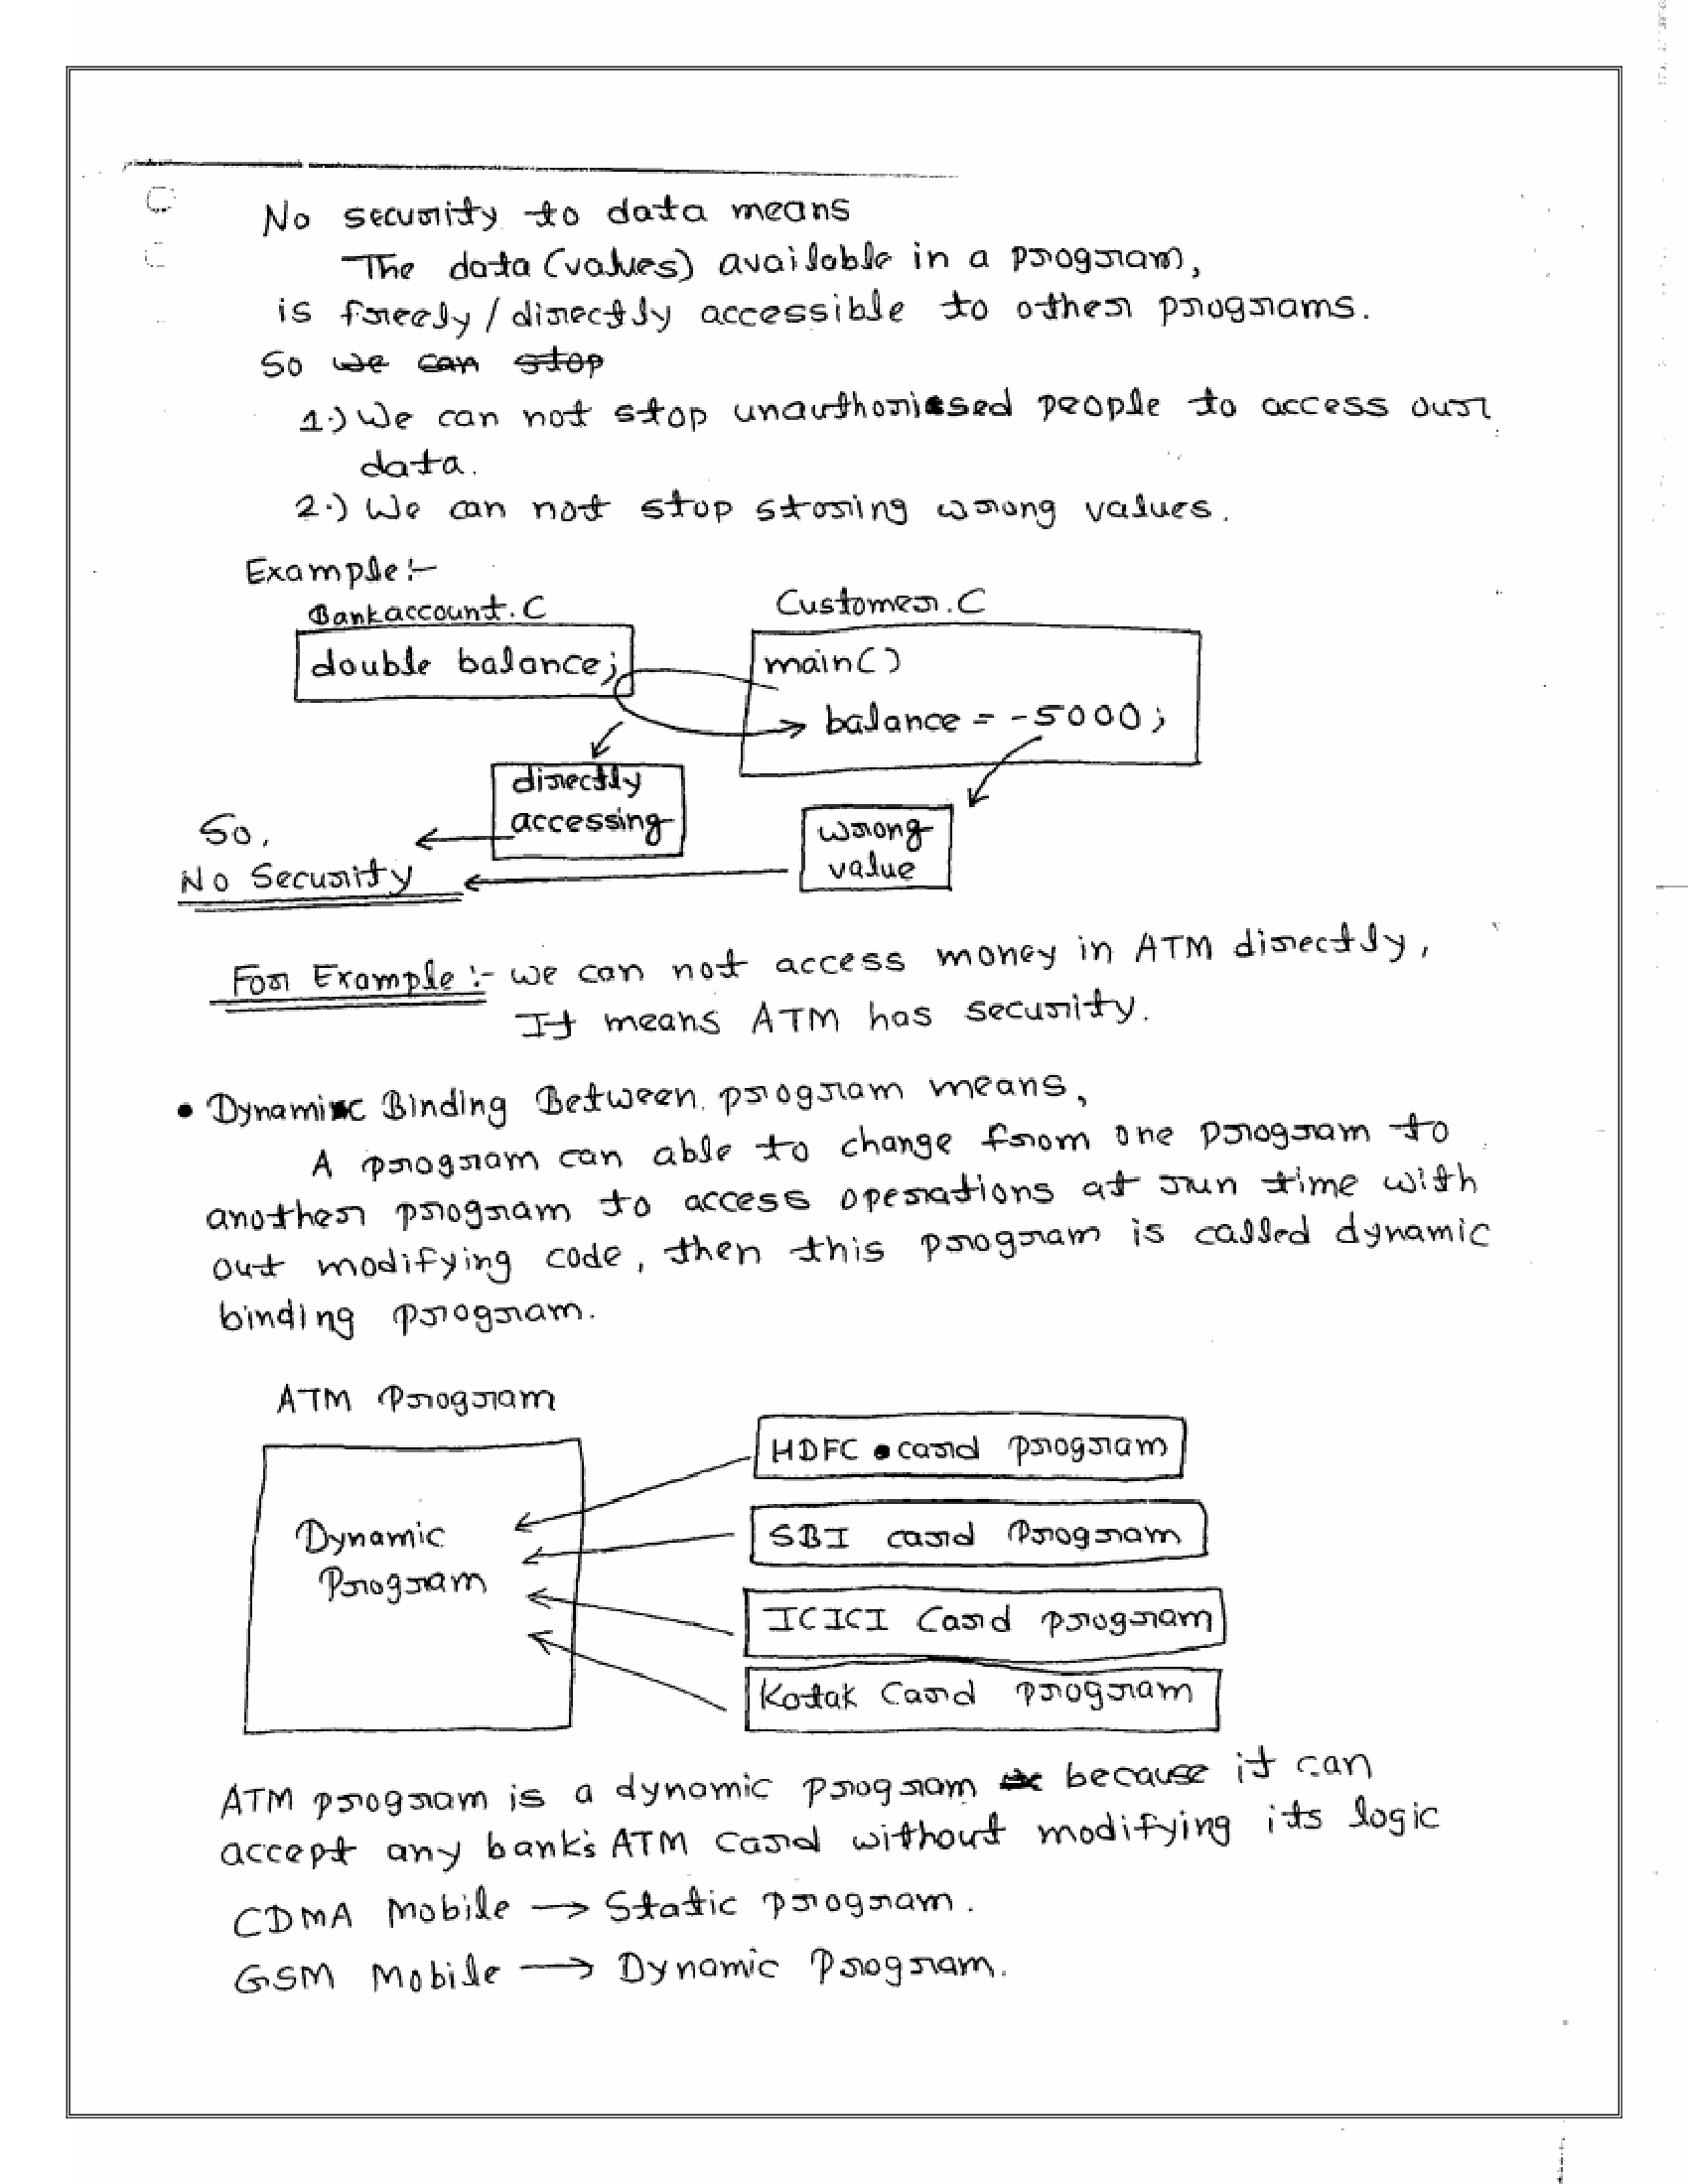 No security to data means
The data (values) available in a program,
is freely / directly accessible to other programs.
So we can stop
1.) We can not stop unauthorissed people to access our
data.
2.) We can not stop storing wrong values.
Example:-
Bankaccount.C
Customer.C
double balance;
main()
balance = -5000;
directly
accessing
wrong
value
So,
No Security
For Example :- we can not access money in ATM directly,
It means ATM has security.
• Dynamic Binding Between program means,
A program can able to change from one program to
another program to access operations at run time with
out modifying code, then this program is called dynamic
binding program.
ATM Program
Dynamic
Program
HDFC card program
SBI card Program
ICICI Card program
Kotak Card program
ATM program is a dynamic program because it can
accept any bank's ATM card without modifying its logic
CDMA Mobile → Static program.
GSM Mobile → Dynamic Program.